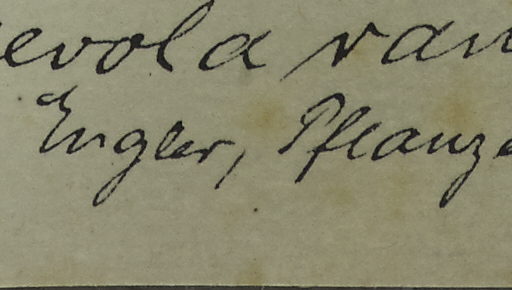 evola ran
Engler, Pflanze